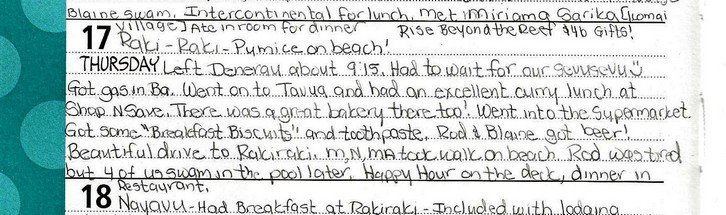 Blaine swam. Intercontinental for lunch, met Miriama Sarika (Lomai
Village) Ate in room for dinner Rise Beyond the Reef $46 Gifts!
17 Raki-Raki-Pumice on beach!
THURSDAY Left Denerau about 9:15. Had to wait for our sevusevu
Got gas in Ba. Went on to Tavua and had an excellent curry lunch at
Shop N Save. There was a great bakery there too! Went into the supermarket
Got some "Breakfast Biscuits" and toothpaste. Rod & Blaine got beer!
Beautiful drive to Rakiraki. M, N, MA took walk on beach. Rod was tired
but 4 of us swam in the pool later. Happy Hour on the deck, dinner in
Restaurant.
18 Nayavu-Had Breakfast at Rakiraki-Included with lodging